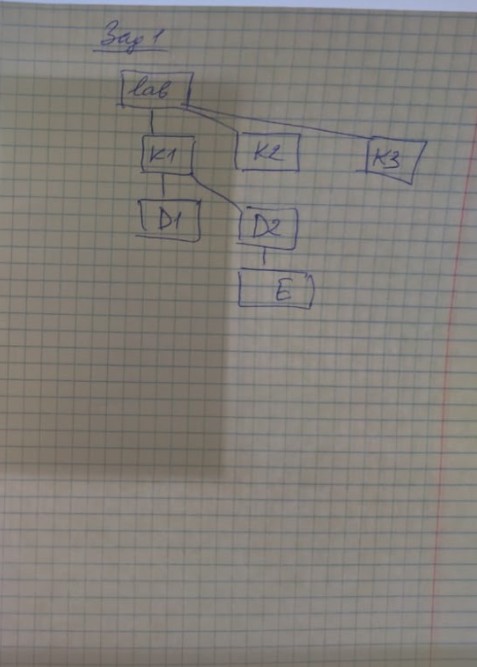 Зад 1
lab
K1 K2 K3
D1 D2
E